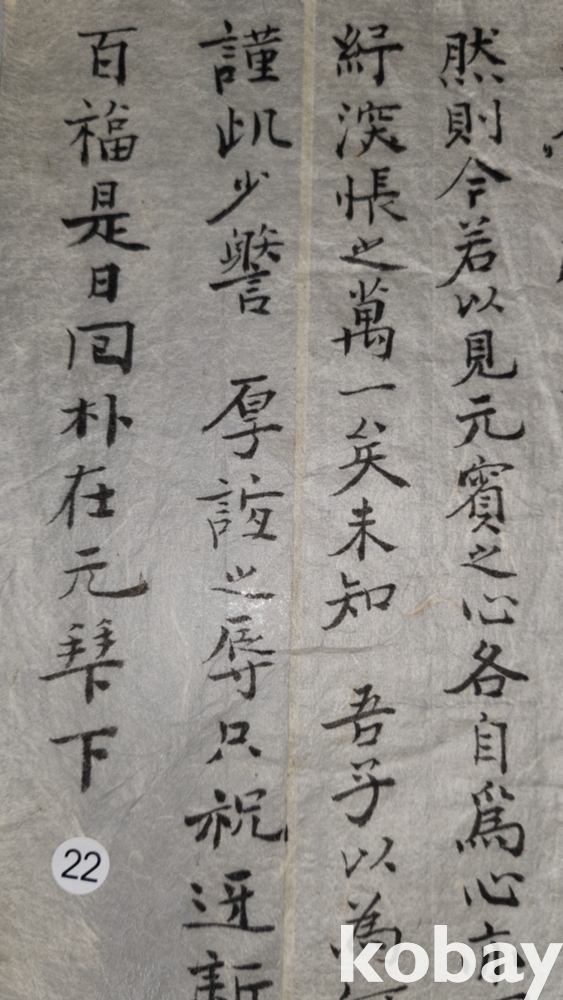 然則今若以見元賓之心各自爲心亦
紆深悵之萬一矣未知 吾子以為何
謹此少謦 厚誼之辱只祝迓新
百福是日回朴在元拜下
22
kobay